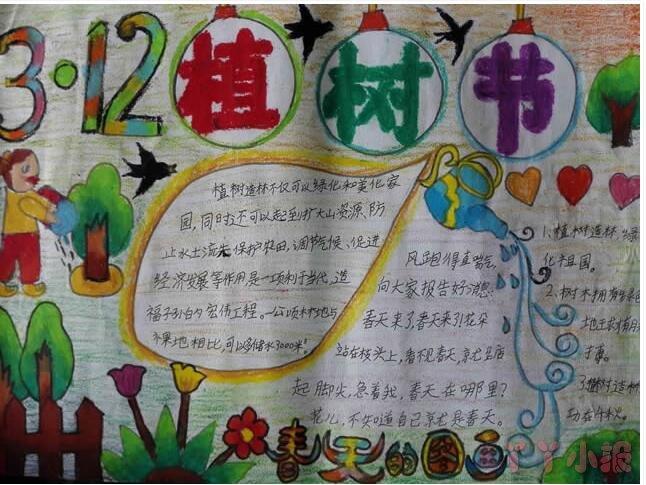 3·12植树节
植树造林不仅可以绿化和美化家
园,同时还可以起到扩大山资源、防
止水土流失保护农田、调节气候、促进
经济发展等作用,是一项利于当代、造
福子孙的宏伟工程。一公顷林地与
地相比,可以多储水3000米³。
风跑得直喘气,
向大家报告好消息:
春天来了,春天来了!花朵
站在枝头上,看不见春天,就
起脚尖,急着找,春天在哪里?
花儿,不知道自己就是春天。
1、植树造林 绿
化祖国。
2、树木拥有
3、植树造林
春天的图画
丫丫小报